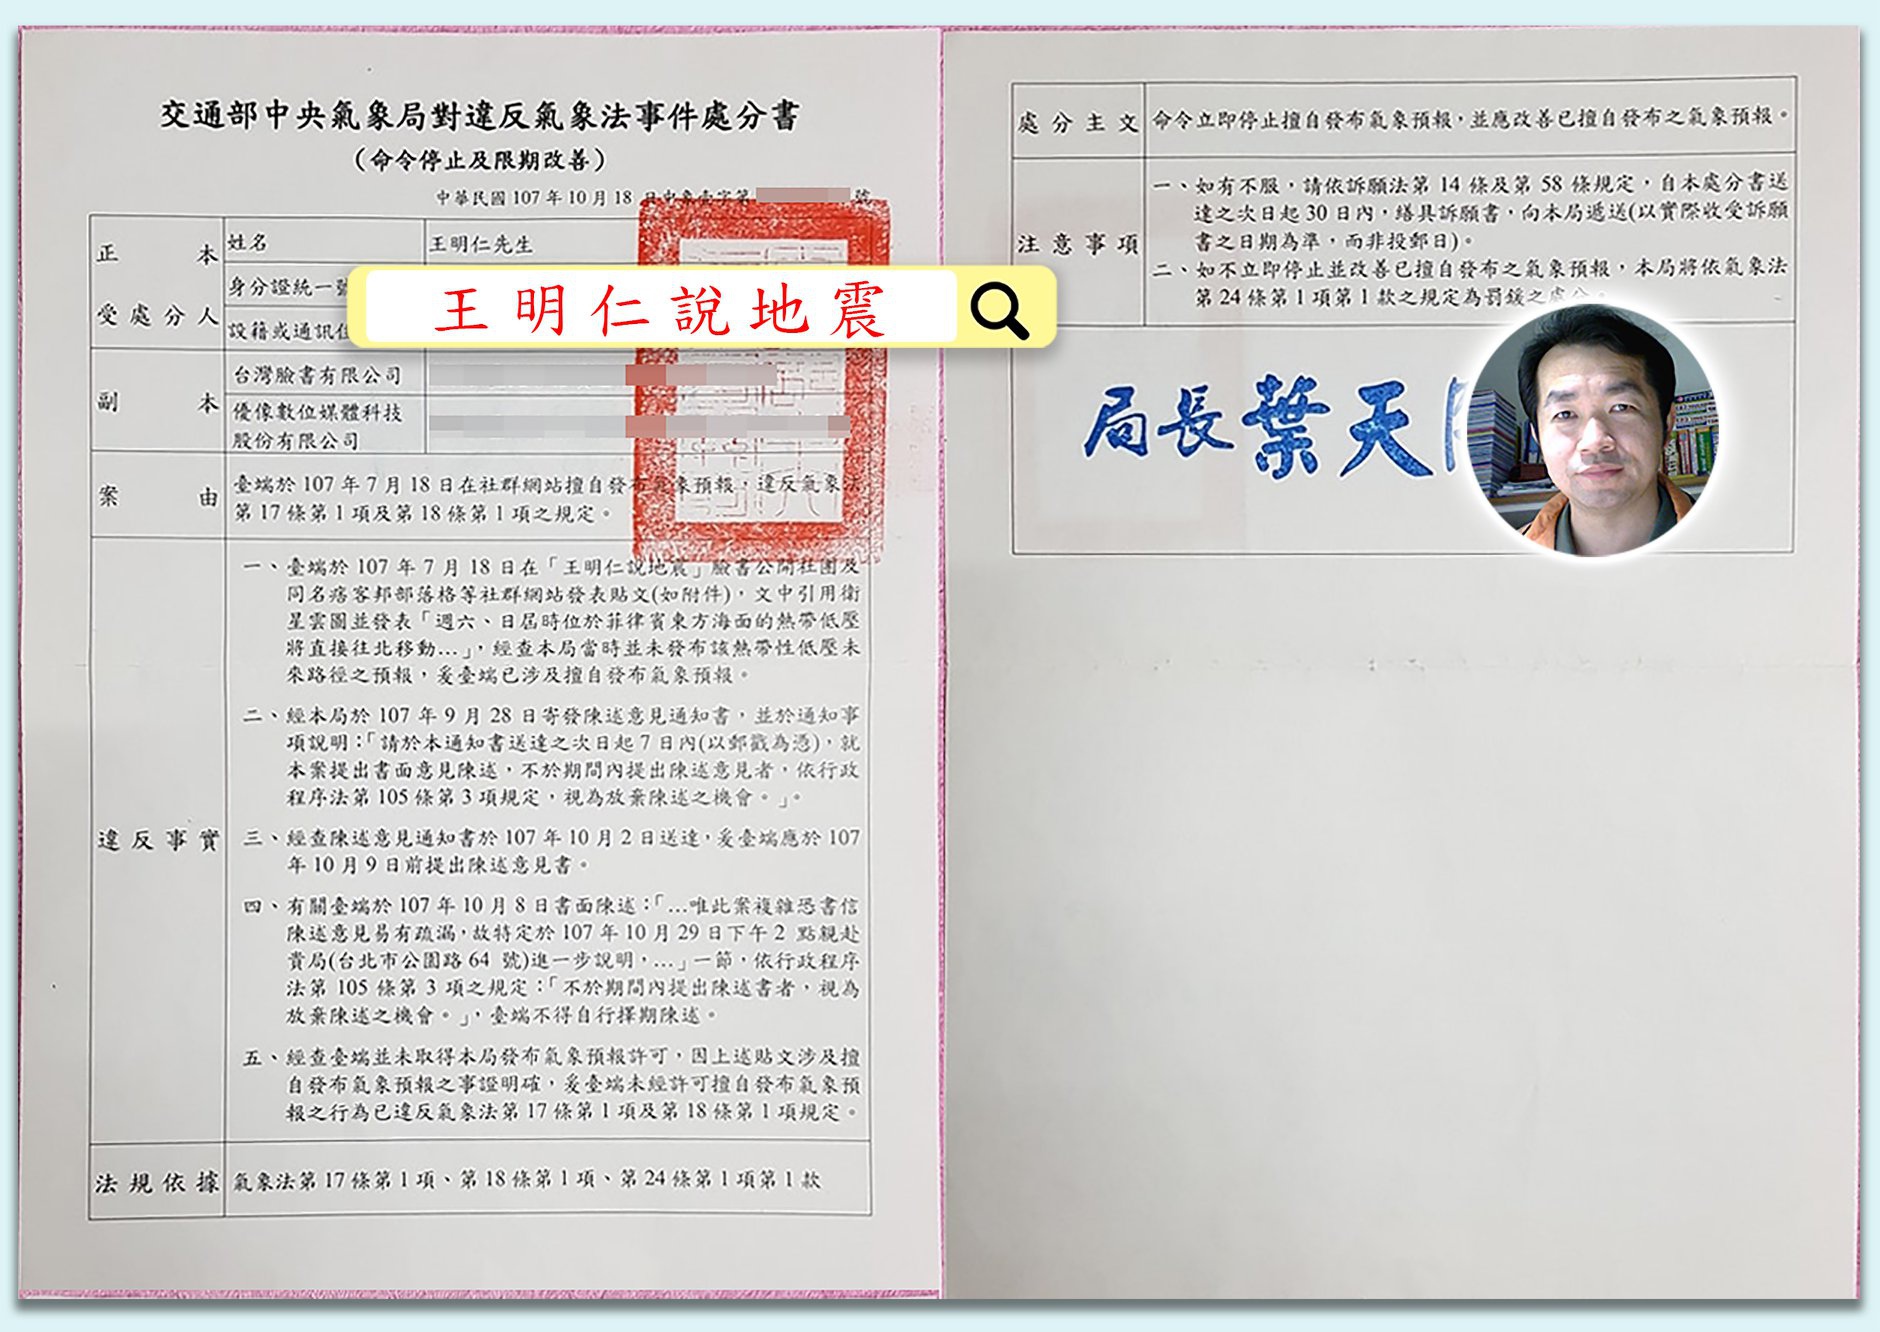 交通部中央氣象局對違反氣象法事件處分書
（命令停止及限期改善）
中華民國 107 年 10 月 18 日中象壹字第 號
正本
受處分人
姓名
王明仁先生
身分證統一
設籍或通訊
王明仁說地震
副本
台灣臉書有限公司
優像數位媒體科技
股份有限公司
案由
臺端於 107 年 7 月 18 日在社群網站擅自發布氣象預報，違反氣象法
第 17 條第 1 項及第 18 條第 1 項之規定。
違反事實
一、臺端於 107 年 7 月 18 日在「王明仁說地震」臉書公開社團及
同名痞客邦部落格等社群網站發表貼文(如附件)，文中引用衛
星雲圖並發表「週六、日屆時位於菲律賓東方海面的熱帶低壓
將直接往北移動...」，經查本局當時並未發布該熱帶性低壓未
來路徑之預報，爰臺端已涉及擅自發布氣象預報。
二、經本局於 107 年 9 月 28 日寄發陳述意見通知書，並於通知事
項說明：「請於本通知書送達之次日起 7 日內(以郵戳為憑)，就
本案提出書面意見陳述，不於期間內提出陳述意見者，依行政
程序法第 105 條第 3 項規定，視為放棄陳述之機會。」。
三、經查陳述意見通知書於 107 年 10 月 2 日送達，爰臺端應於 107
年 10 月 9 日前提出陳述意見書。
四、有關臺端於 107 年 10 月 8 日書面陳述：「...唯此案複雜恐書信
陳述意見易有疏漏，故特定於 107 年 10 月 29 日下午 2 點親赴
貴局(台北市公園路 64 號)進一步說明，...」一節，依行政程序
法第 105 條第 3 項之規定：「不於期間內提出陳述書者，視為
放棄陳述之機會。」，臺端不得自行擇期陳述。
五、經查臺端並未取得本局發布氣象預報許可，因上述貼文涉及擅
自發布氣象預報之事證明確，爰臺端未經許可擅自發布氣象預
報之行為已違反氣象法第 17 條第 1 項及第 18 條第 1 項規定。
法規依據
氣象法第 17 條第 1 項、第 18 條第 1 項、第 24 條第 1 項第 1 款
處分主文
命令立即停止擅自發布氣象預報，並應改善已擅自發布之氣象預報。
注意事項
一、如有不服，請依訴願法第 14 條及第 58 條規定，自本處分書送
達之次日起 30 日內，繕具訴願書，向本局遞送(以實際收受訴願
書之日期為準，而非投郵日)。
二、如不立即停止並改善已擅自發布之氣象預報，本局將依氣象法
第 24 條第 1 項第 1 款之規定為罰鍰之處分。
局長葉天